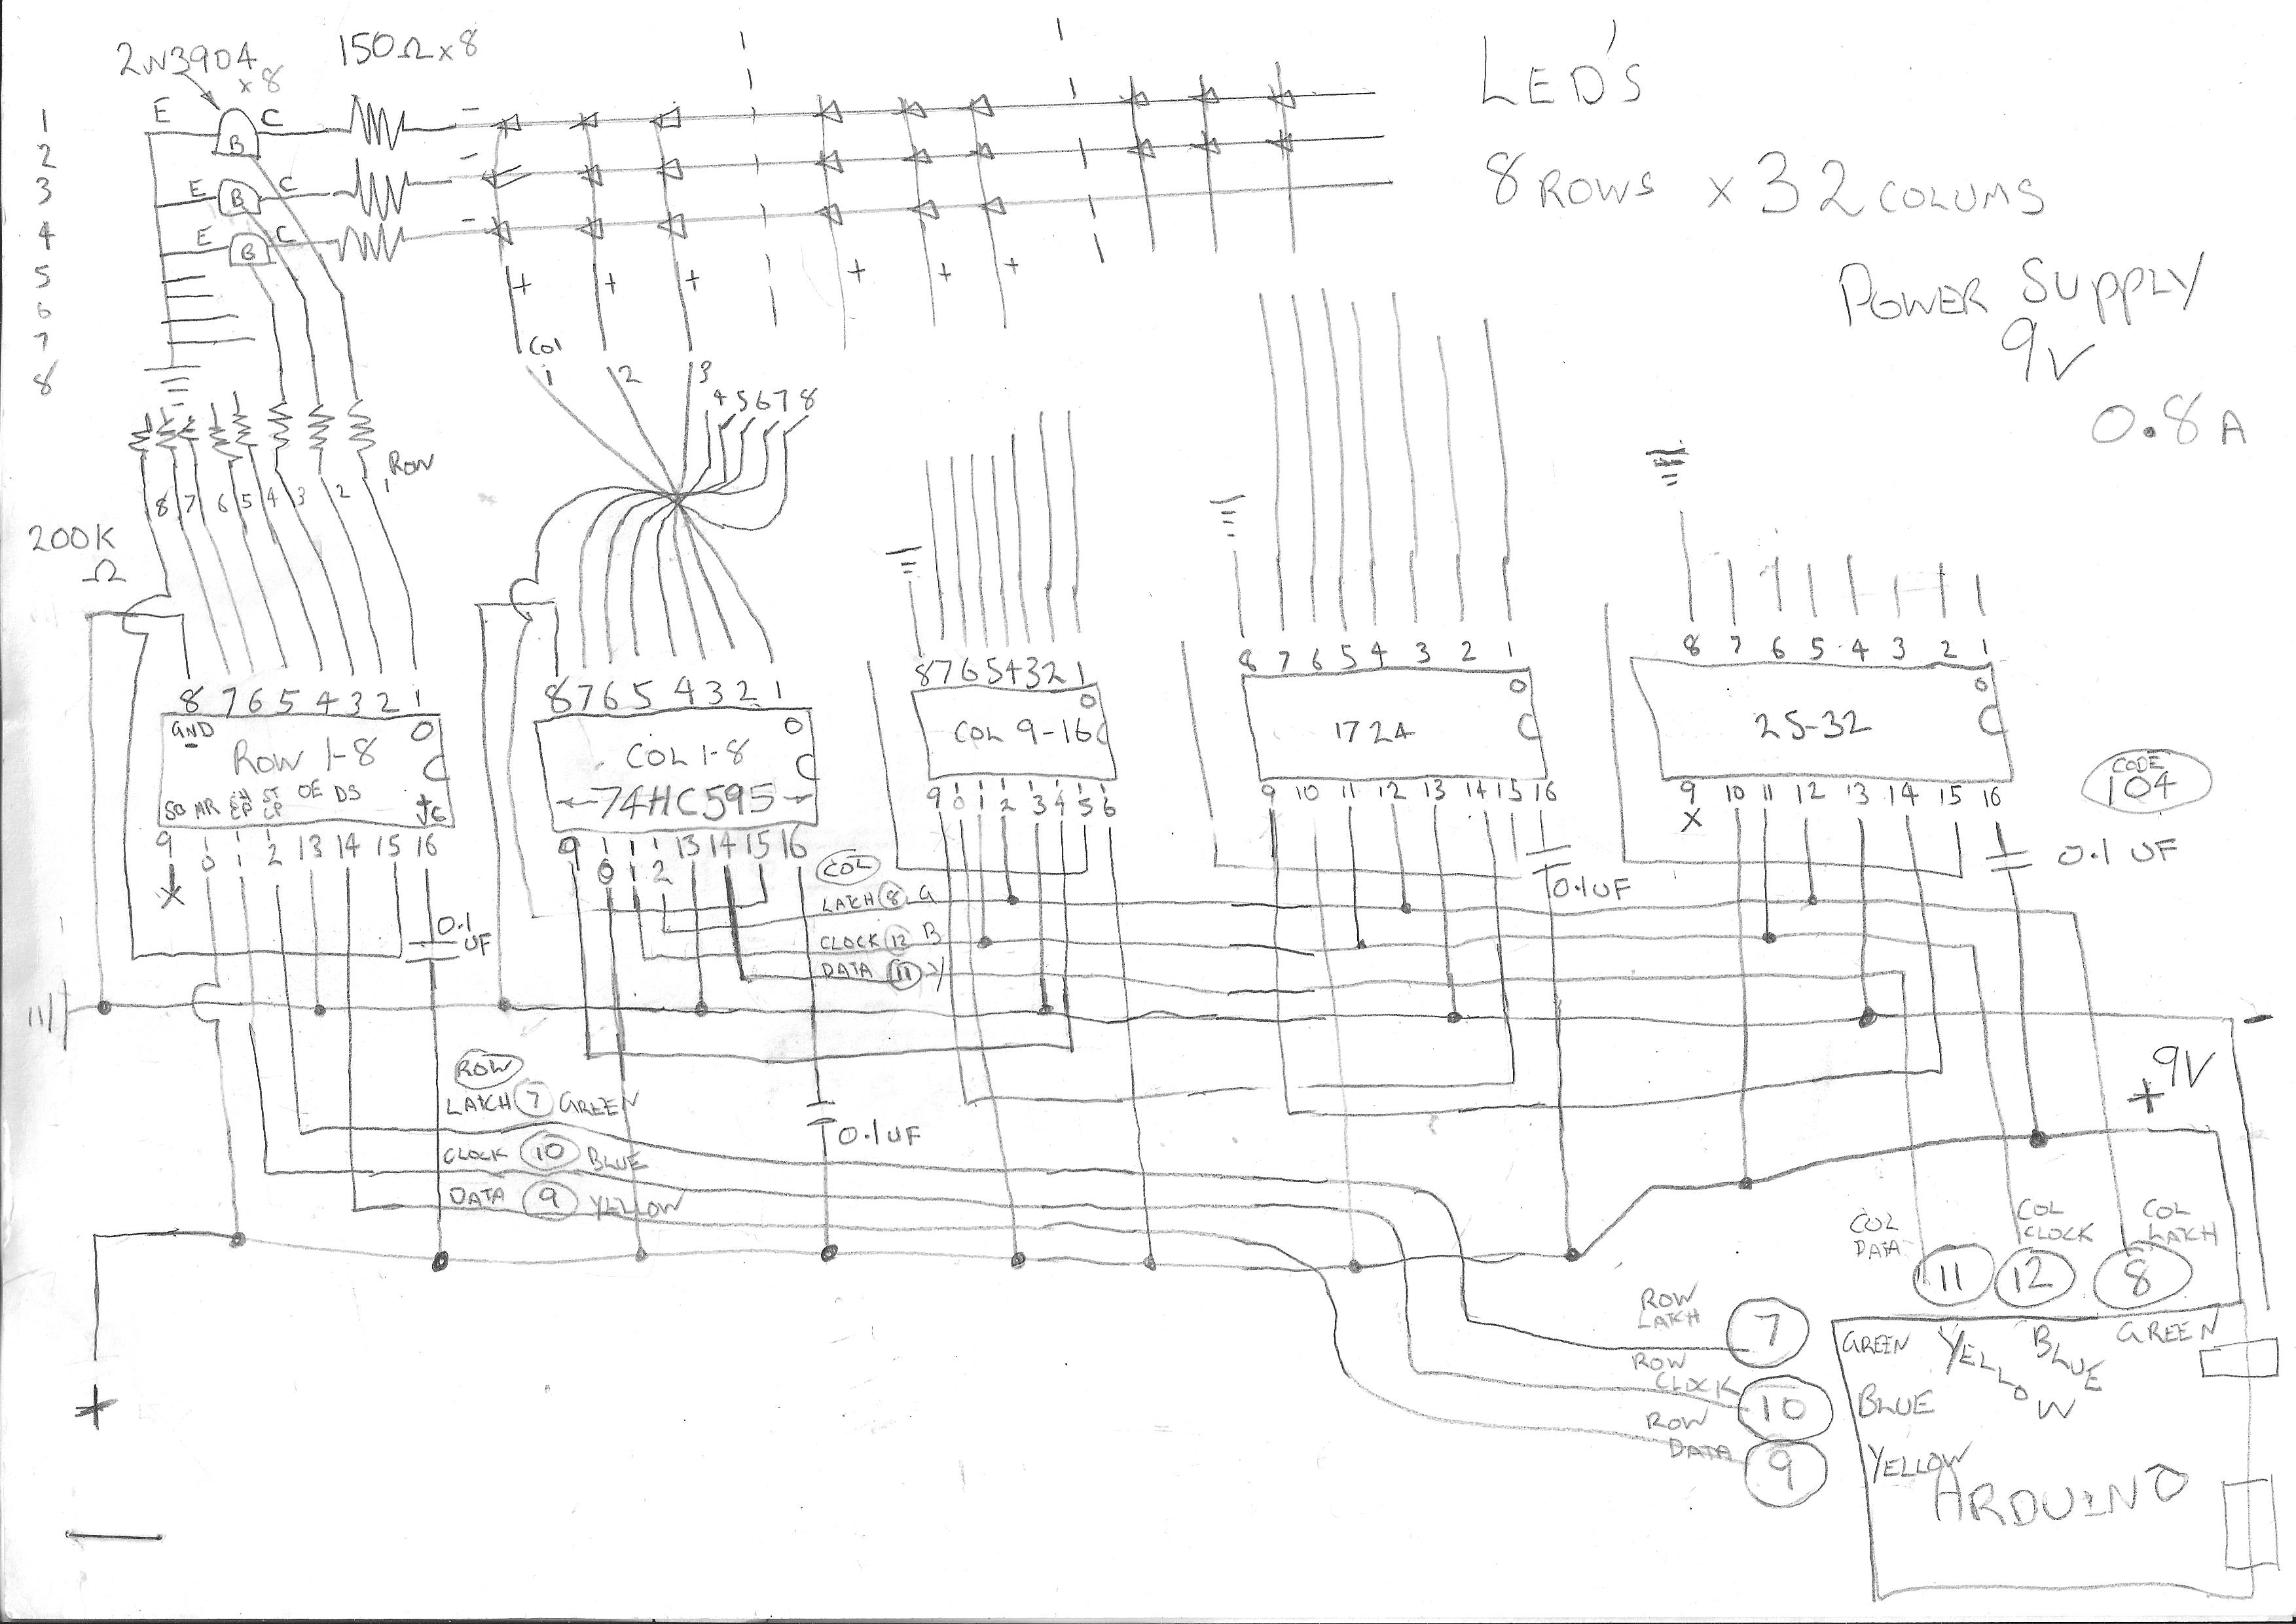 2N3904
x8
150Ω x 8
LED'S
8 ROWS x 32 COLUMS
POWER SUPPLY
9V
0.8A
E C
B
E C
B
E C
B
1
2
3
4
5
6
7
8
- - -
+ + + + + +
COL
1 2 3
4 5 6 7 8
ROW
8 7 6 5 4 3 2 1
200K
Ω
8 7 6 5 4 3 2 1
GND
ROW 1-8
SB MR SH CP ST CP OE DS
9 10 11 12 13 14 15 16
X
0.1
UF
8 7 6 5 4 3 2 1
COL 1-8
74HC595
9 10 11 12 13 14 15 16
8 7 6 5 4 3 2 1
COL 9-16
9 10 11 12 13 14 15 16
8 7 6 5 4 3 2 1
1724
9 10 11 12 13 14 15 16
0.1UF
8 7 6 5 4 3 2 1
25-32
9 10 11 12 13 14 15 16
X
CODE
104
0.1 UF
COL
LATCH 8 G
CLOCK 12 B
DATA 11 Y
ROW
LATCH 7 GREEN
CLOCK 10 BLUE
DATA 9 YELLOW
0.1UF
-
9V
+
COL
DATA
COL
CLOCK
COL
LATCH
11 12 8
ROW
LATCH
7
ROW
CLOCK
10
ROW
DATA
9
GREEN YELLOW BLUE GREEN
BLUE
YELLOW
ARDUINO
+
-